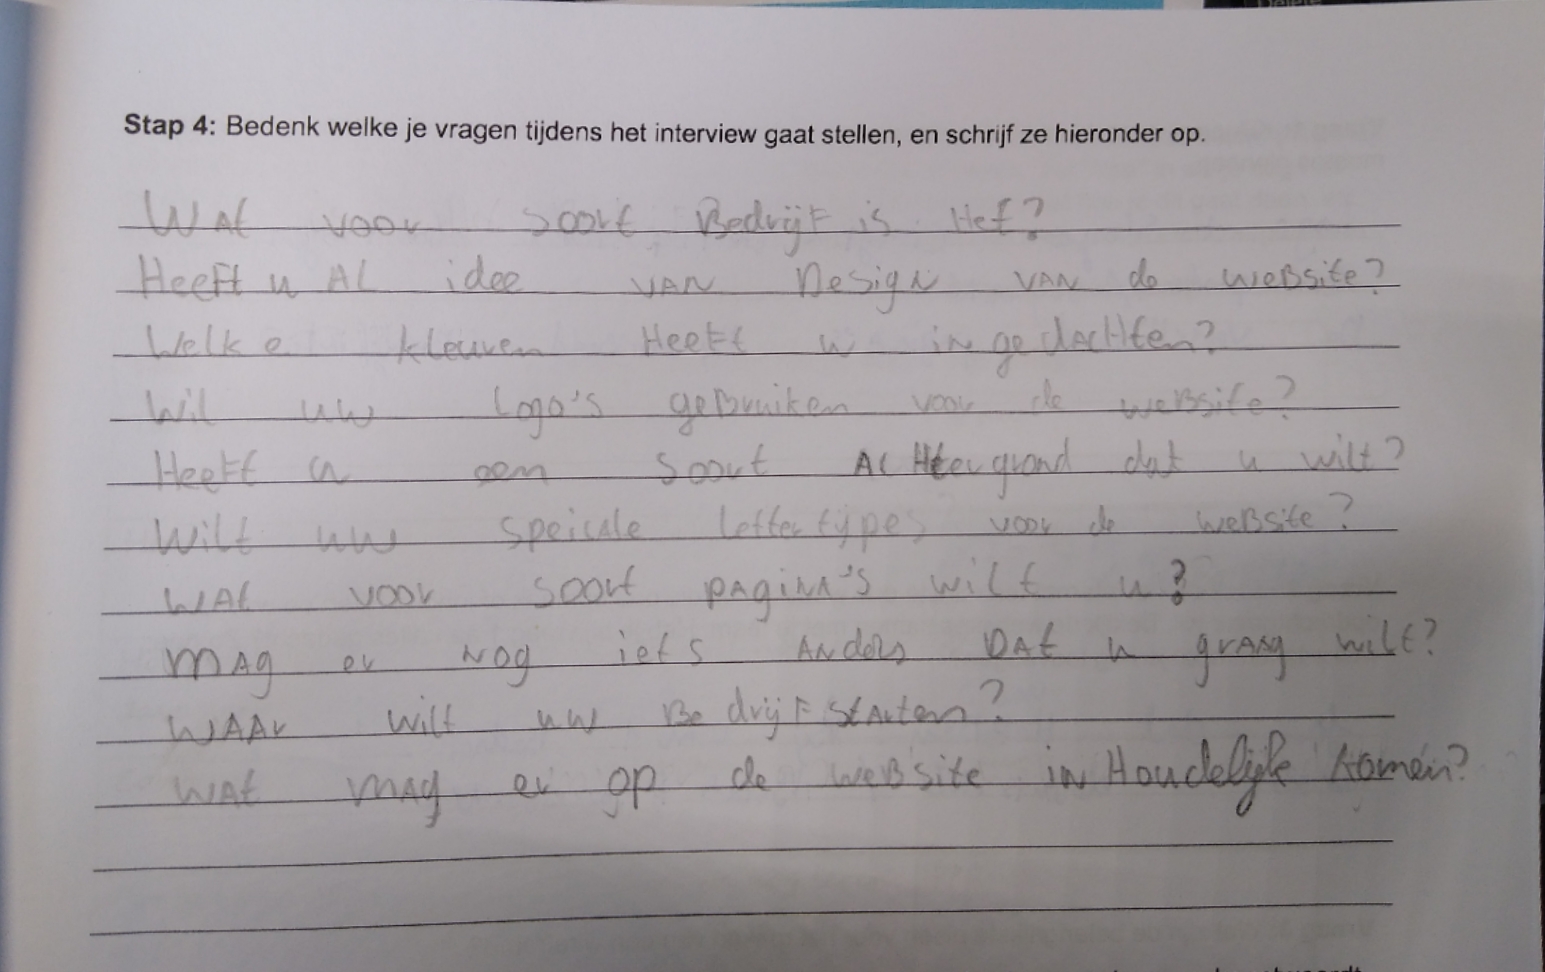 Stap 4: Bedenk welke je vragen tijdens het interview gaat stellen, en schrijf ze hieronder op.
WAt voor soort Bedrijf is Het?
Heeft u AL idee VAN Design VAN de weBsite?
Welke kleuren Heeft u in gedachten?
Wil uw Logo's geBruiken voor de weBsite?
Heeft u een soort AcHtergrond dat u wilt?
Wilt uw speicale lettertypes voor de weBsite?
WAt voor soort pAginA's wilt u?
mAg er Nog iets ANders DAt u grAAg wilt?
WAAr wilt uw BedrijF stArten?
WAt mAg er op de weBsite inHoudelijk komen?